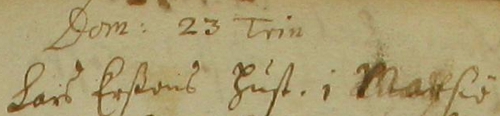 Dom: 23 Trin
Lars Ersons Hust. i Marsiö